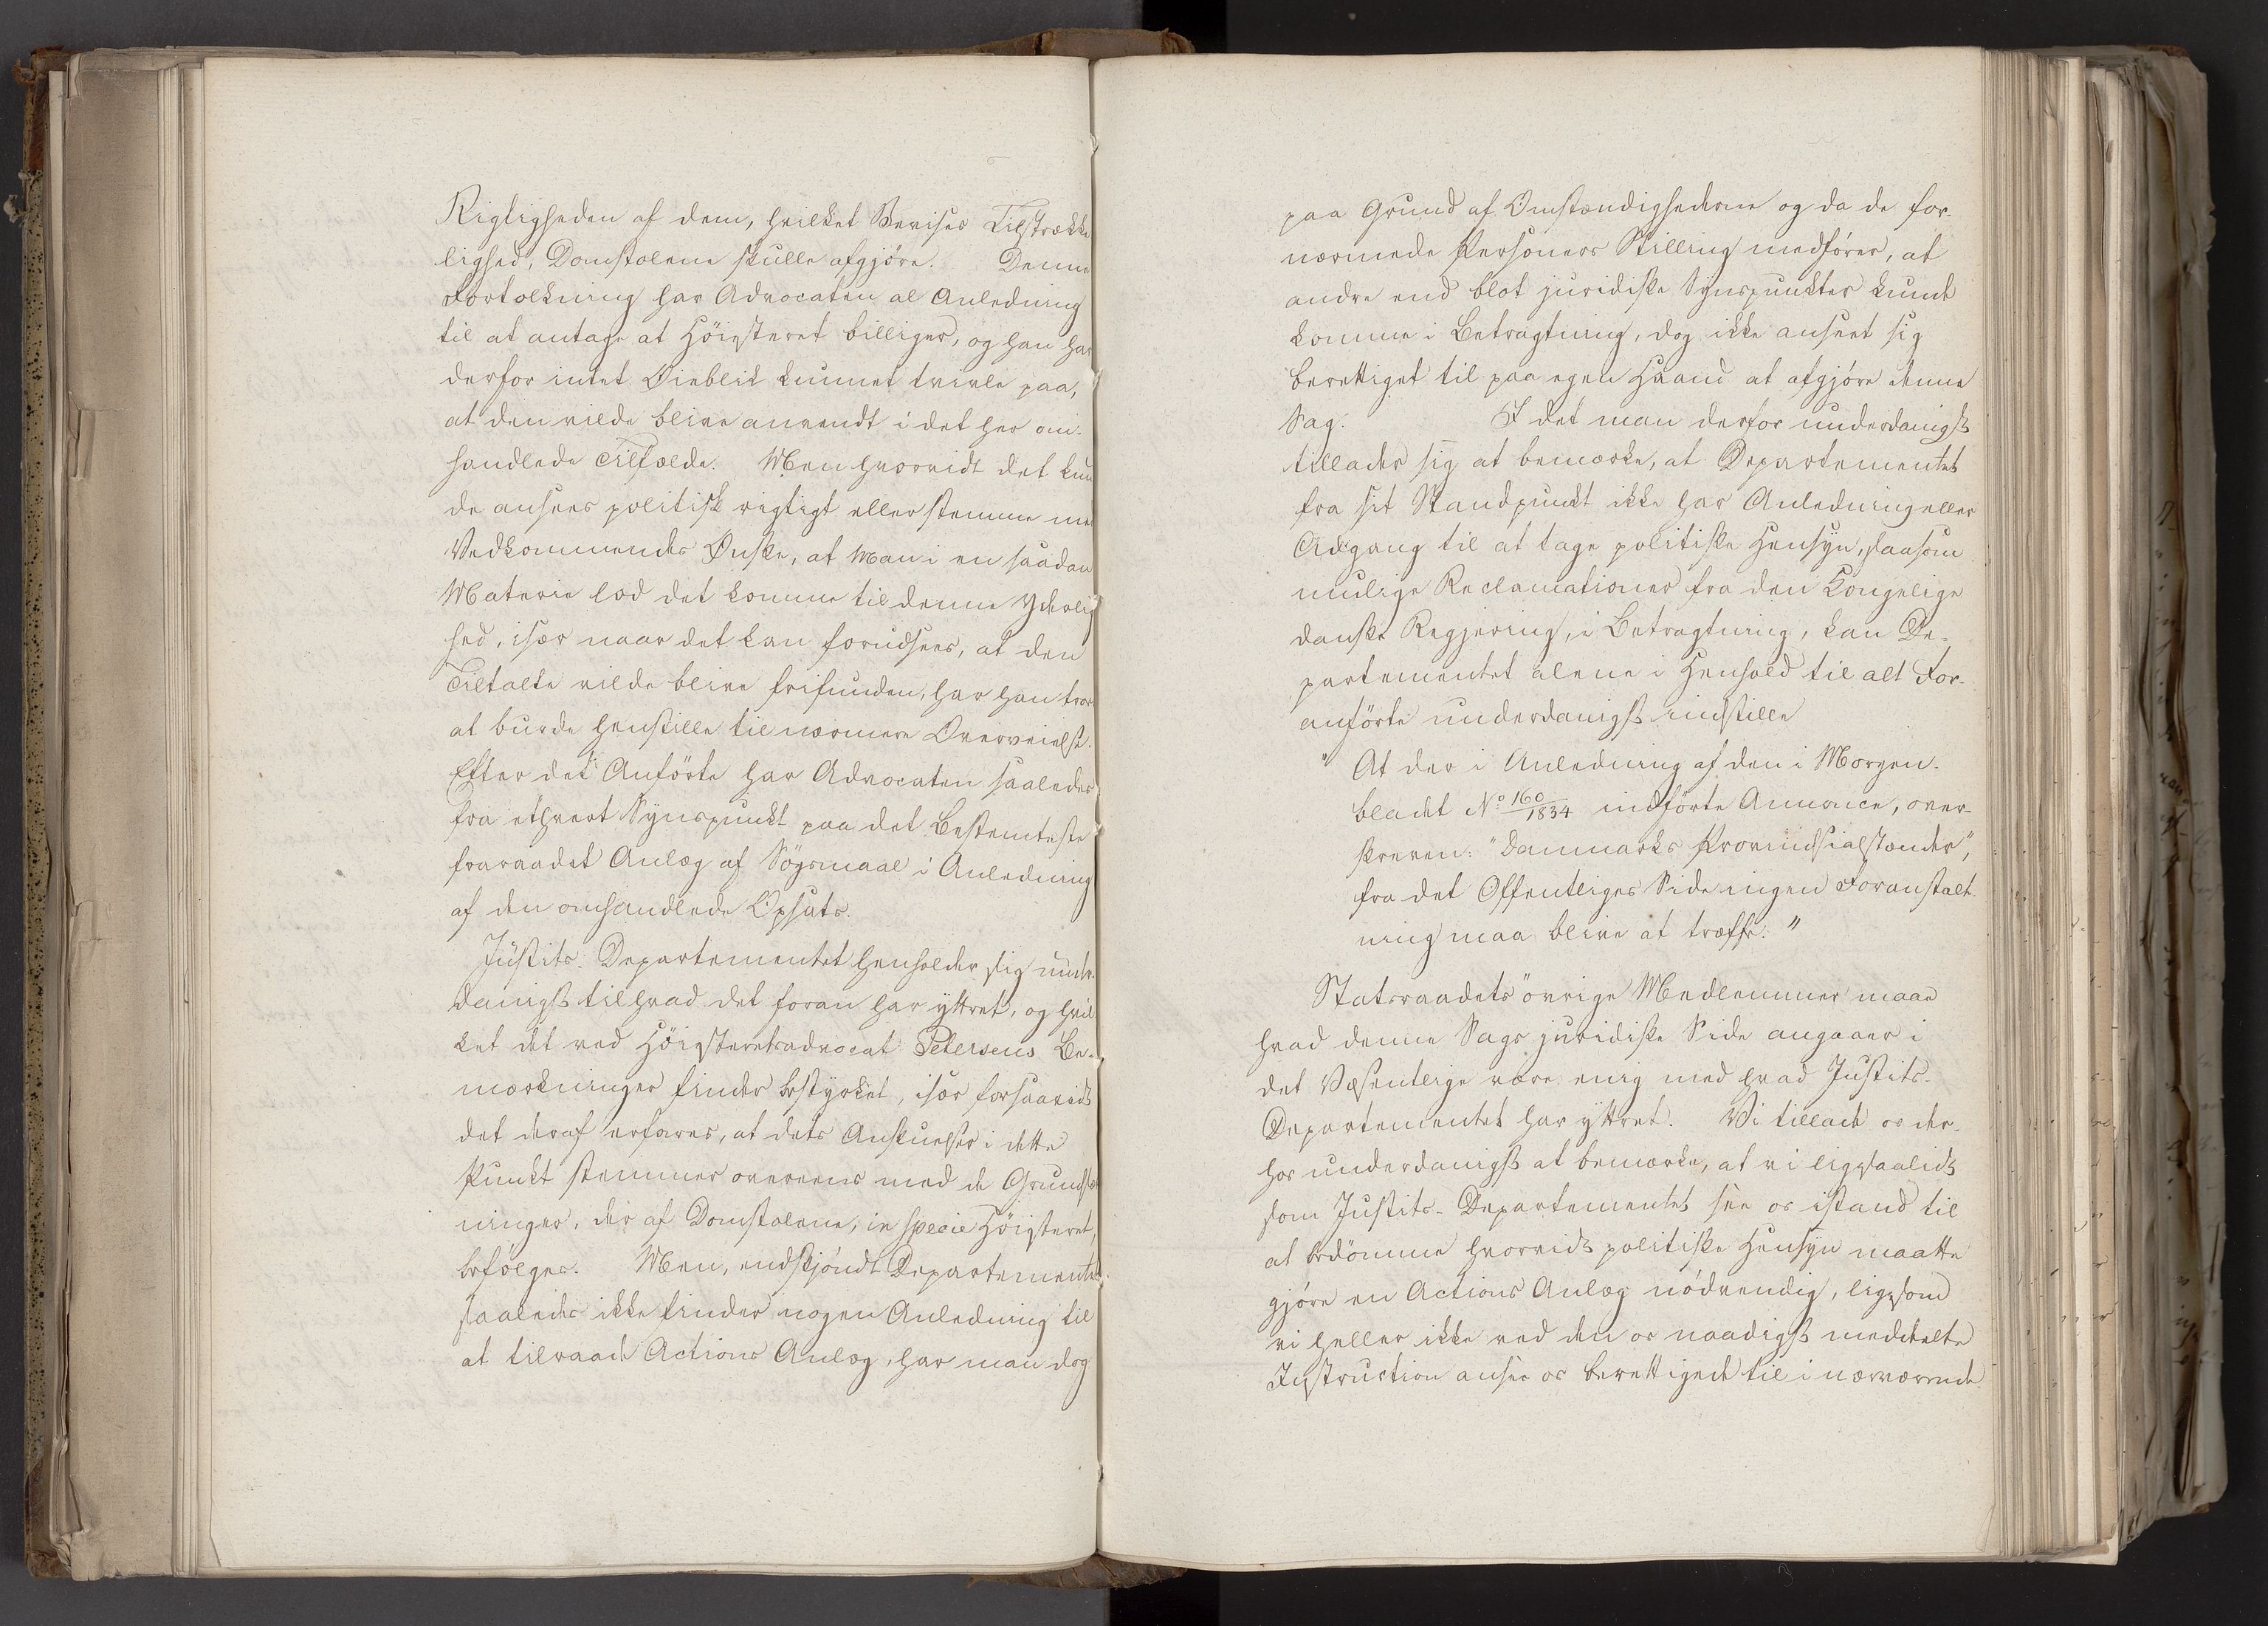 Rigtigheden af dem, hvilket Bevises Tilstrække
lighed, Domstolene skulle afgjöre. Denne
Fortolkning har Advocaten al Anledning
til at antage at Höiesteret billiger, og han har
derfor intet Öieblik kunnet tvivle paa,
at den vilde blive anvendt i det her om-
handlede Tilfælde. Men hvorvidt det kun
de ansees politisk rigtigt eller stemme med
Vedkommendes Önske, at man i en saadan
Materie lod det komme til denne Yderlig
hed, især naar det kan forudsees, at den
Tiltalte vilde blive frifunden, har han troet
at burde henstille til nærmere Overveielse.
Efter det Anförte har Advocaten saaledes
fra ethvert Synspunkt paa det Bestemteste
fraraadet Anlæg af Sögsmaal i Anledning
af den omhandlede Opsats.
Justits-Departementet henholder sig under-
danigst til hvad det foran har yttret, og hvil
ket det ved Höiesteretsadvocat Petersens Be-
mærkninger finder bestyrket, især forsaavidt
det deraf erfares, at dets Anskuelser i dette
Punkt stemmer overeens med de Grundsæt
ninger, der af Domstolene, in specie Höiesteret,
befölges. Men, endskjöndt Departementet
saaledes ikke finder nogen Anledning til
at tilraade Actions Anlæg, har man dog
paa Grund af Omstændighederne og da de for-
nærmede Personers Stilling medförer, at
andre end blot juridiske Synspunkter kunde
komme i Betragtning, dog ikke anseet sig
berettiget til paa egen Haand at afgjöre denne
Sag. I det man derfor underdanigst
tillader sig at bemærke, at Departementet
fra sit Standpunkt ikke har Anledning eller
Adgang til at tage politiske Hensyn, saasom
mulige Reclamationer fra den Kongelige
danske Regjering, i Betragtning, kan De-
partementet alene i Henhold til alt For-
anförte underdanigst indstille
"At der i Anledning af den i Morgen-
bladet No 160/1834 indförte Annonce, over-
skreven: "Danmarks Provindsialstænder",
fra det Offentliges Side ingen Foranstalt
ning maa blive at træffe."
Statsraadets övrige Medlemmer maae
hvad denne Sags juridiske Side angaaer i
det Væsentlige være enig med hvad Justits-
Departementet har yttret. Vi tillade os der-
hos underdanigst at bemærke, at vi ligesaalidt
som Justits-Departementet see os istand til
at bedömme hvorvidt politiske Hensyn maatte
gjöre en Actions Anlæg nödvendig, ligesom
vi heller ikke ved den os naadigst meddeelte
Instruction ansee os berettigede til i nærværende